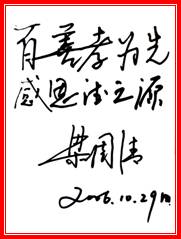 百善孝为先
感恩法之源
梁国清
2006.10.29日